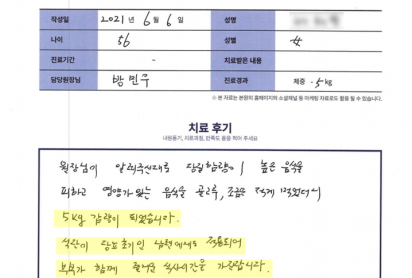 작성일 2021년 6월 6일 성명
나이 56 성별 女
진료기간 - 치료받은 내용
담당원장님 방민우 진료경과 체중 -5kg
※ 본 자료는 본원의 홈페이지와 소셜채널 등 마케팅 자료로도 활용 될 수 있습니다.
치료 후기
내원동기, 치료과정, 만족도 등을 적어 주세요
원장님이 알려주신대로 당질함량이 높은 음식을
피하고 영양가있는 음식을 골고루, 조금 적게 먹었더니
5kg 감량이 되었습니다.
식단이 당뇨 초기인 남편에게도 적용되어
부부가 함께 즐거운 식사시간을 가집니다.